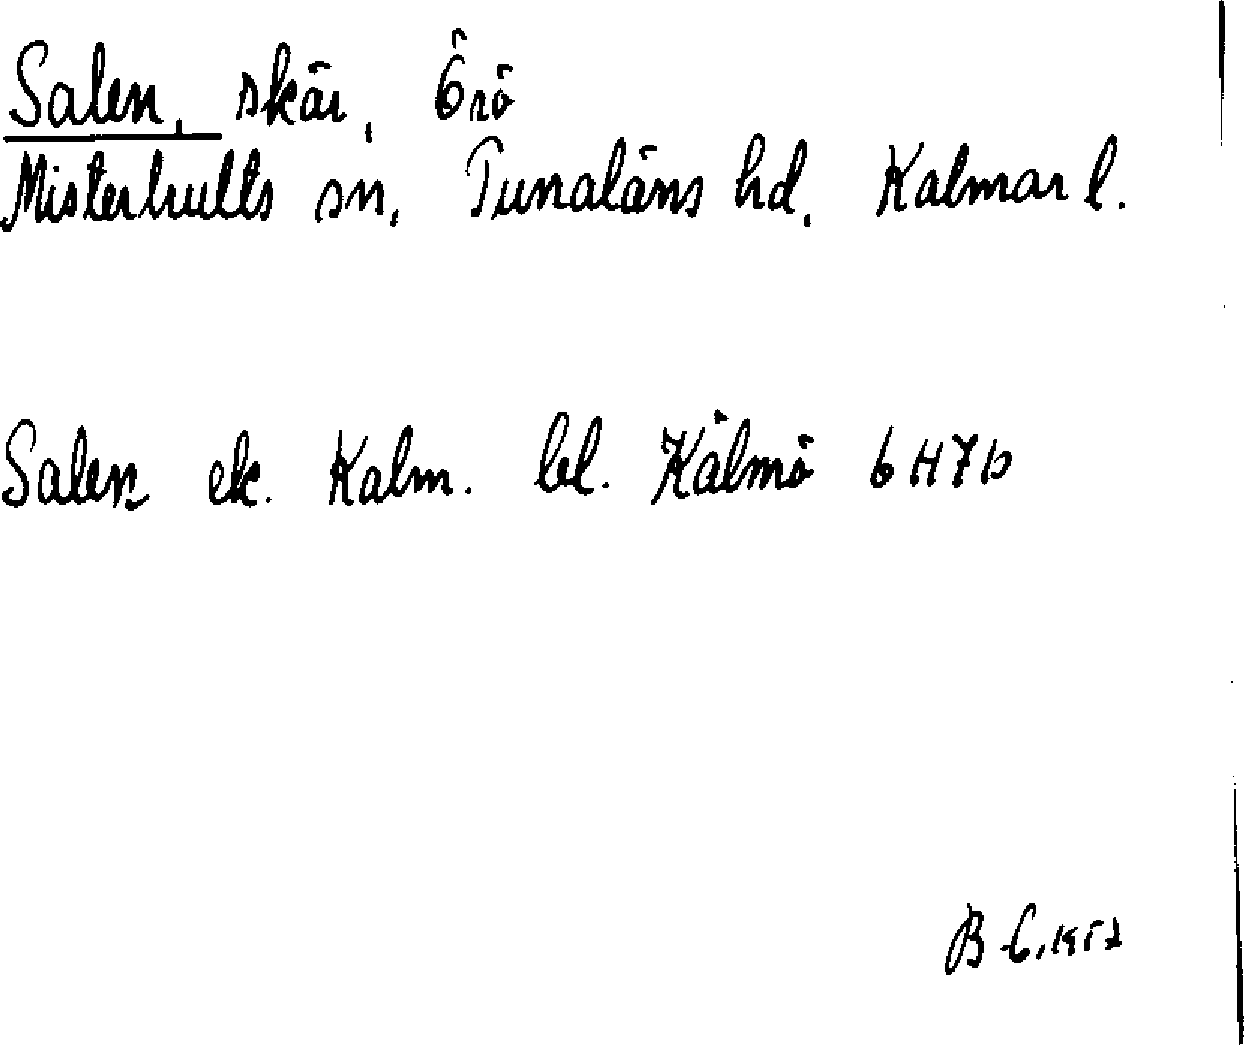 Salen, skär, Örö
Misterhults sn, Tunaläns hd, Kalmar l.
Salen ek. Kalm. bl. Kälmö 6H7b